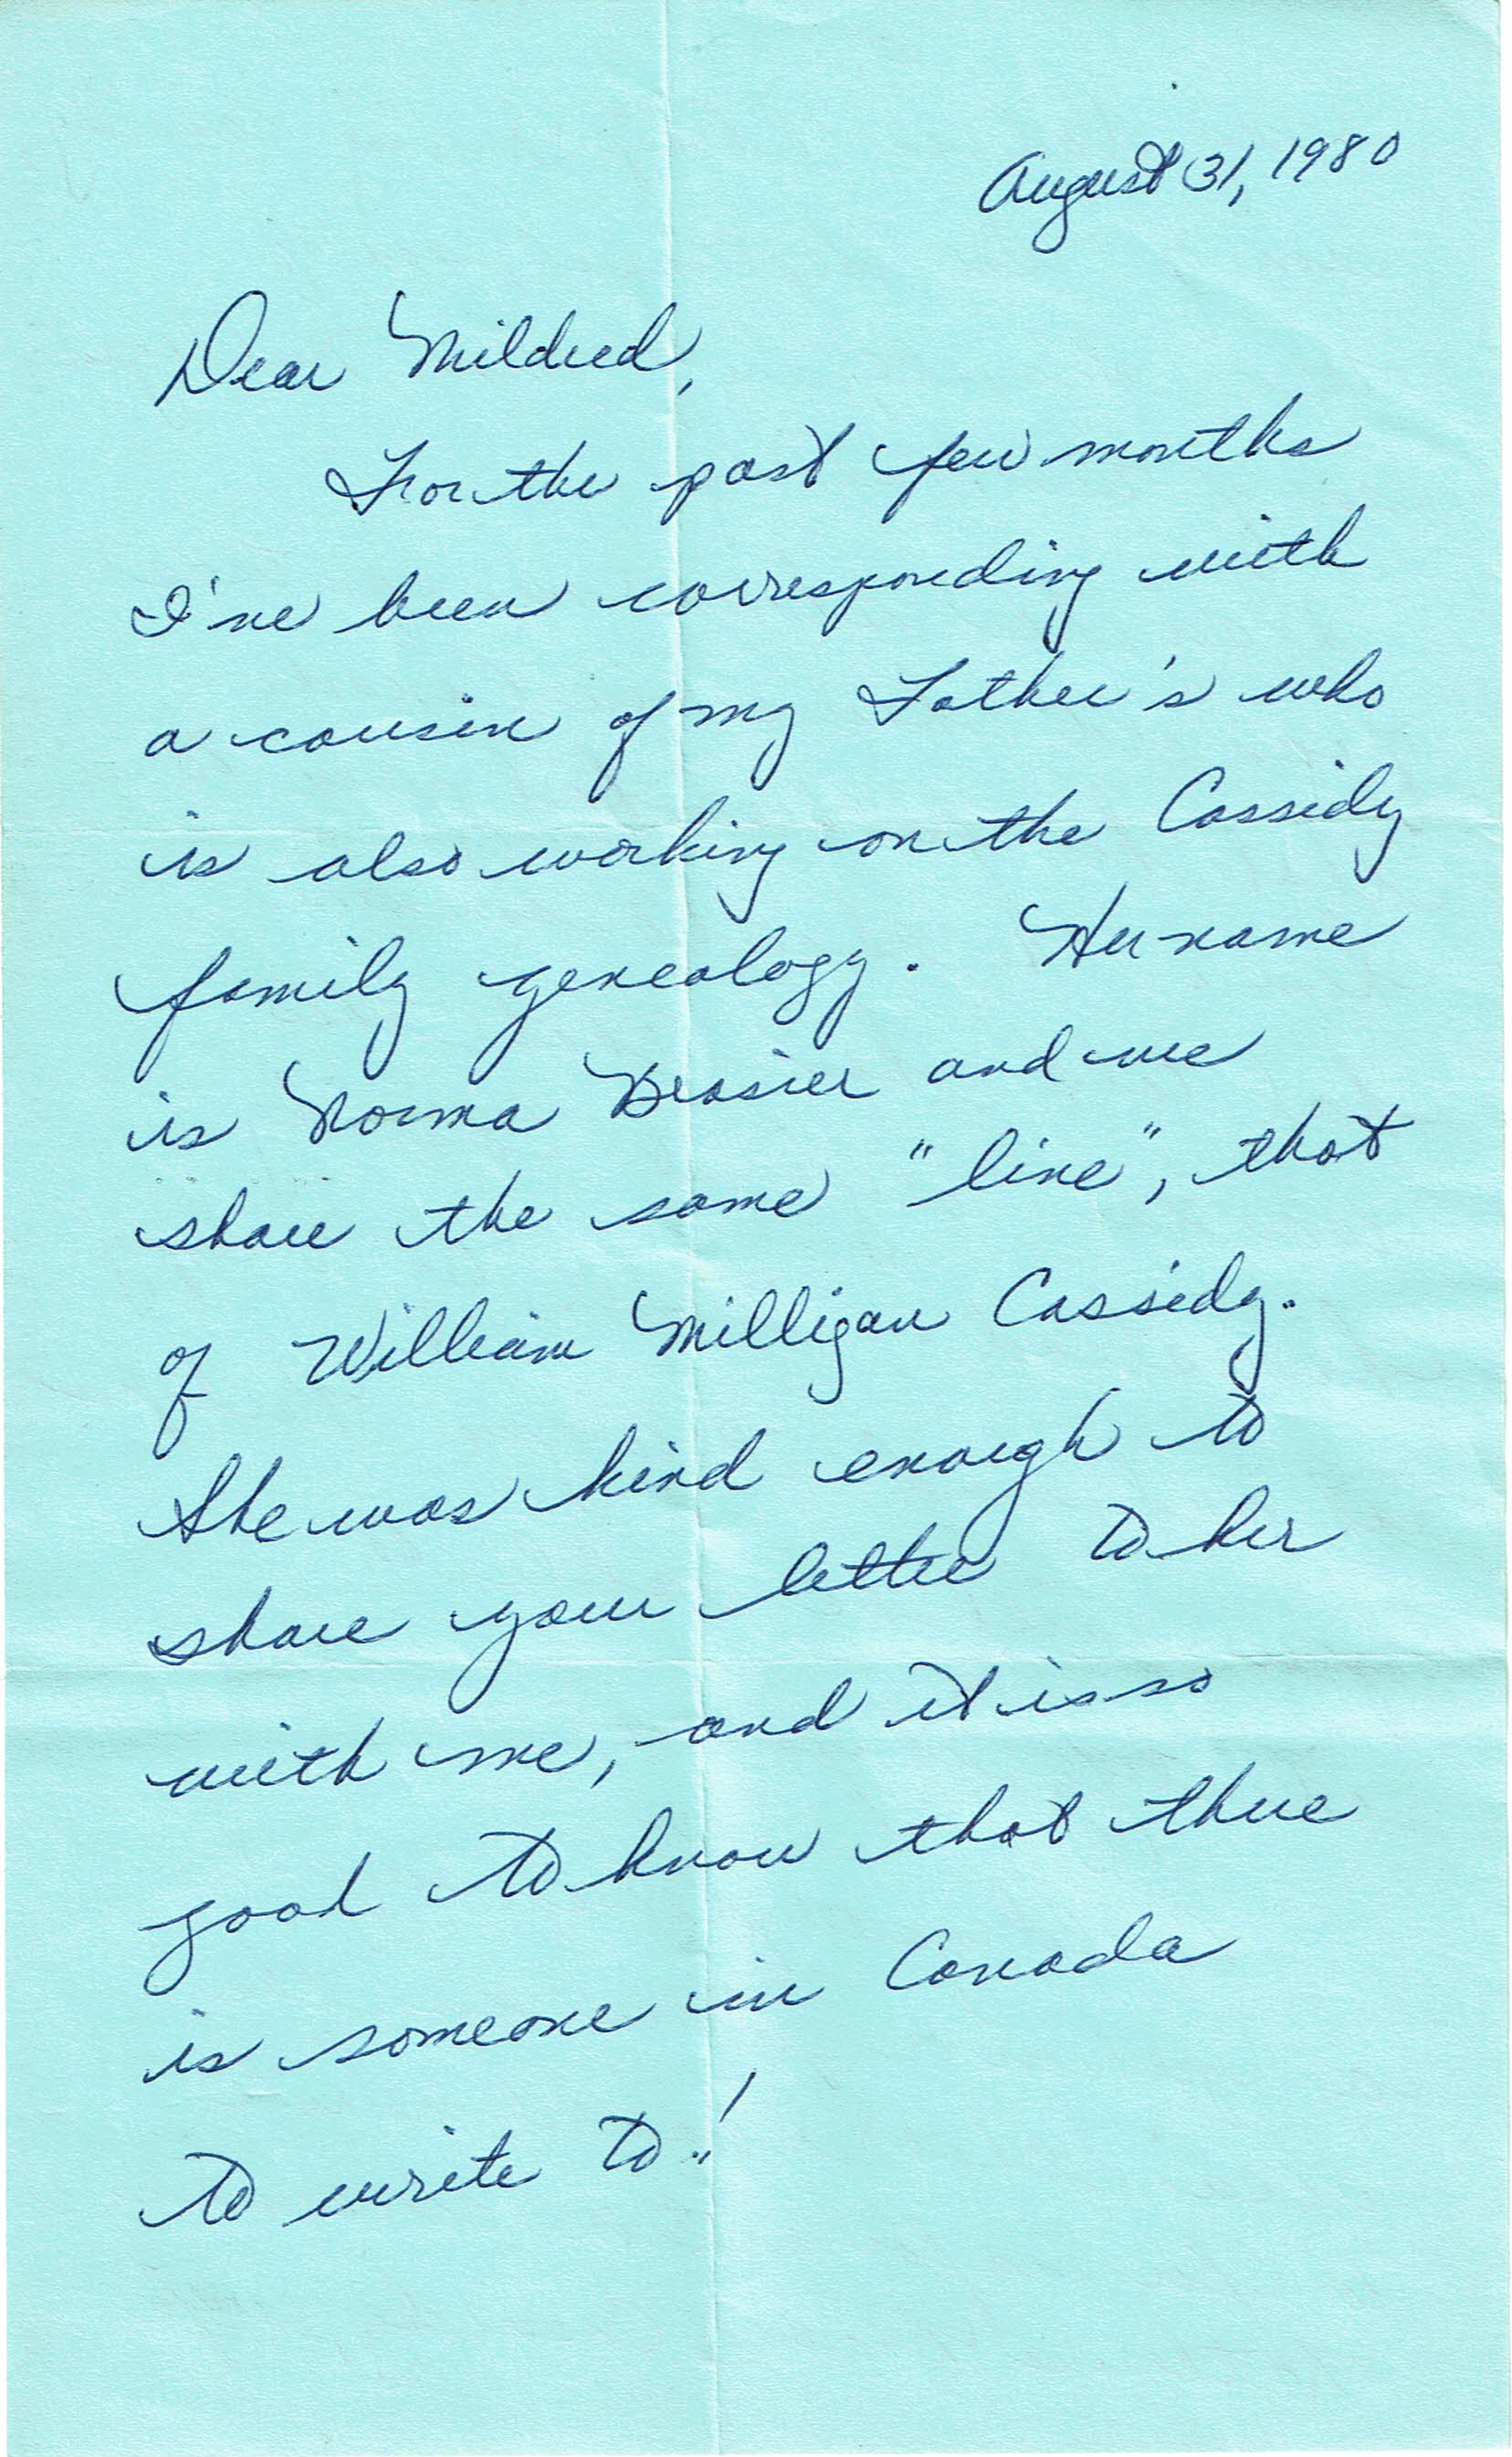 August 31, 1980
Dear Mildred,
For the past few months
I've been corresponding with
a cousin of my Father's who
is also working on the Cassidy
family genealogy. Her name
is Norma and we
share the same "line", that
of William Milligan Cassidy.
She was kind enough to
share your letter to her
with me, and it is so
good to know that there
is someone in Canada
to write to!